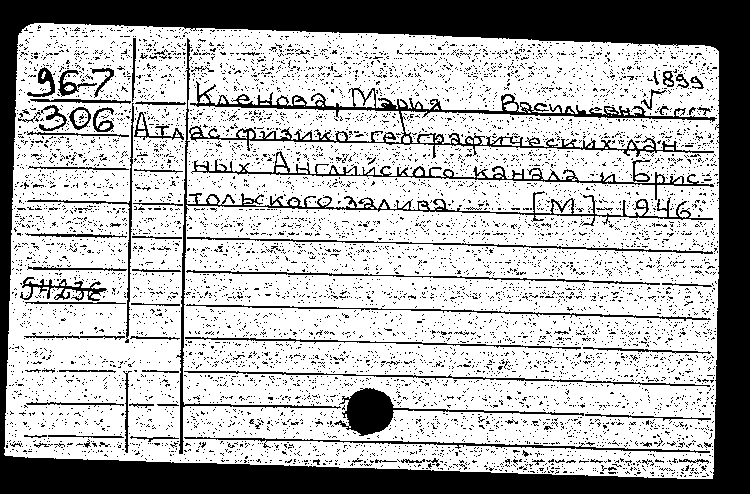 1899
96-7 Кленова, Мария Васильевна сост
306 Атлас физико-географических дан-
ных Английского канала и Брис-
тольского залива. [М], 1946.